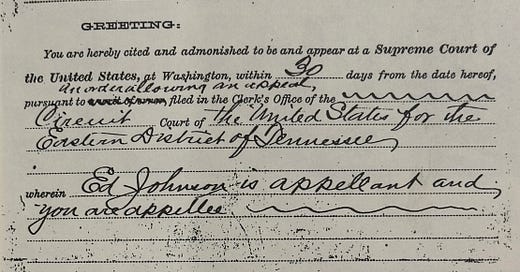 GREETING:
You are hereby cited and admonished to be and appear at a Supreme Court of
the United States, at Washington, within 30 days from the date hereof,
an order allowing an appeal,
pursuant to writ of error, filed in the Clerk's Office of the
Circuit Court of the United States for the
Eastern District of Tennessee,
wherein Ed Johnson is appellant and
you are appellee